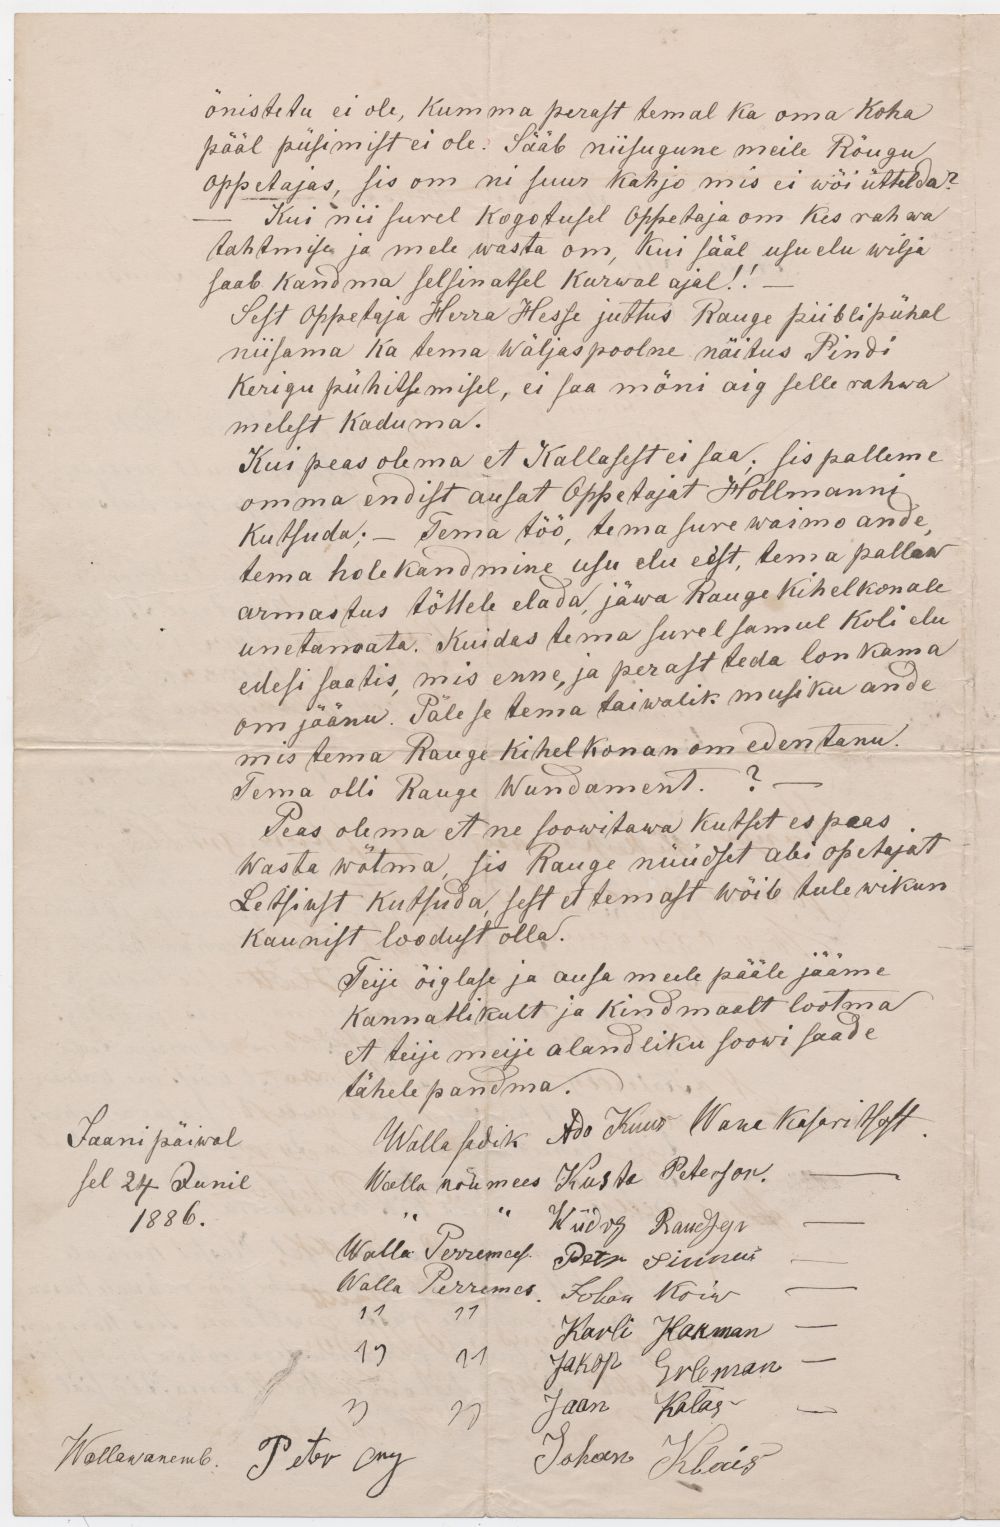 önistetu ei ole, Kumma perast temal ka oma Koha
pääl püsimist ei ole. Sääb niisugune meile Röugu
oppetajas, sis om ni suur kahjo mis ei wöi üttelda?
— Kui nii surel Kogotusel Oppetaja om Kes rahwa
tahtmise ja mele wasta om, Kui sääl usu elu wilja
saab Kandma selsinatsel Kurwal ajal!! —
Sest Oppetaja Herra Hesse juttus Rauge piiblipühal
niisama Ka tema Wäljaspoolne näitus Pindi
Kerigu pühitsemisel, ei saa möni aig selle rahwa
melest Kaduma.
Kui peas olema et Kallasest ei saa; sis palleme
omma endist ausat Oppetajat Hollmanni
Kutsuda; — Tema töö, tema sure waimo ande,
tema holekandmine usu elu eest, tema pallaw
armastus töttele elada, jäwa Rauge Kihelkonale
unetamata. Kuidas tema surel samul Koli elu
edesi saatis, mis enne, ja perast teda lonkama
om jäänu. Päle se tema taiwalik musiku ande
mis tema Rauge Kihelkonan om edentanu.
Tema olli Rauge Wundament. ? —
Peas olema et ne soowitawa Kutset es peas
wasta wötma, sis Rauge nüüdset abi opetajat
Letsinst Kutsuda, sest et temast wöib tulewikun
Kaunist loodust olla.
Teije öiglase ja ausa meele pääle jääme
Kannatlikult ja Kindmaalt lootma
et teije meije alandliku soowi saade
tähele pandma.
Jaani päiwal
sel 24 Junil
1886.
Walla sädik Ado Kuus Wana Kasaritsast.
Walla nöumees Kusta Peterson. —
" " Wiidrg —
Walla Perremees. Petr —
Walla Perremes. Johan Köiw —
" " Karli Hakman —
" " Jakop Erleman —
" " Jaan Kalas —
Johan Klais
Wallawanemb. Peter